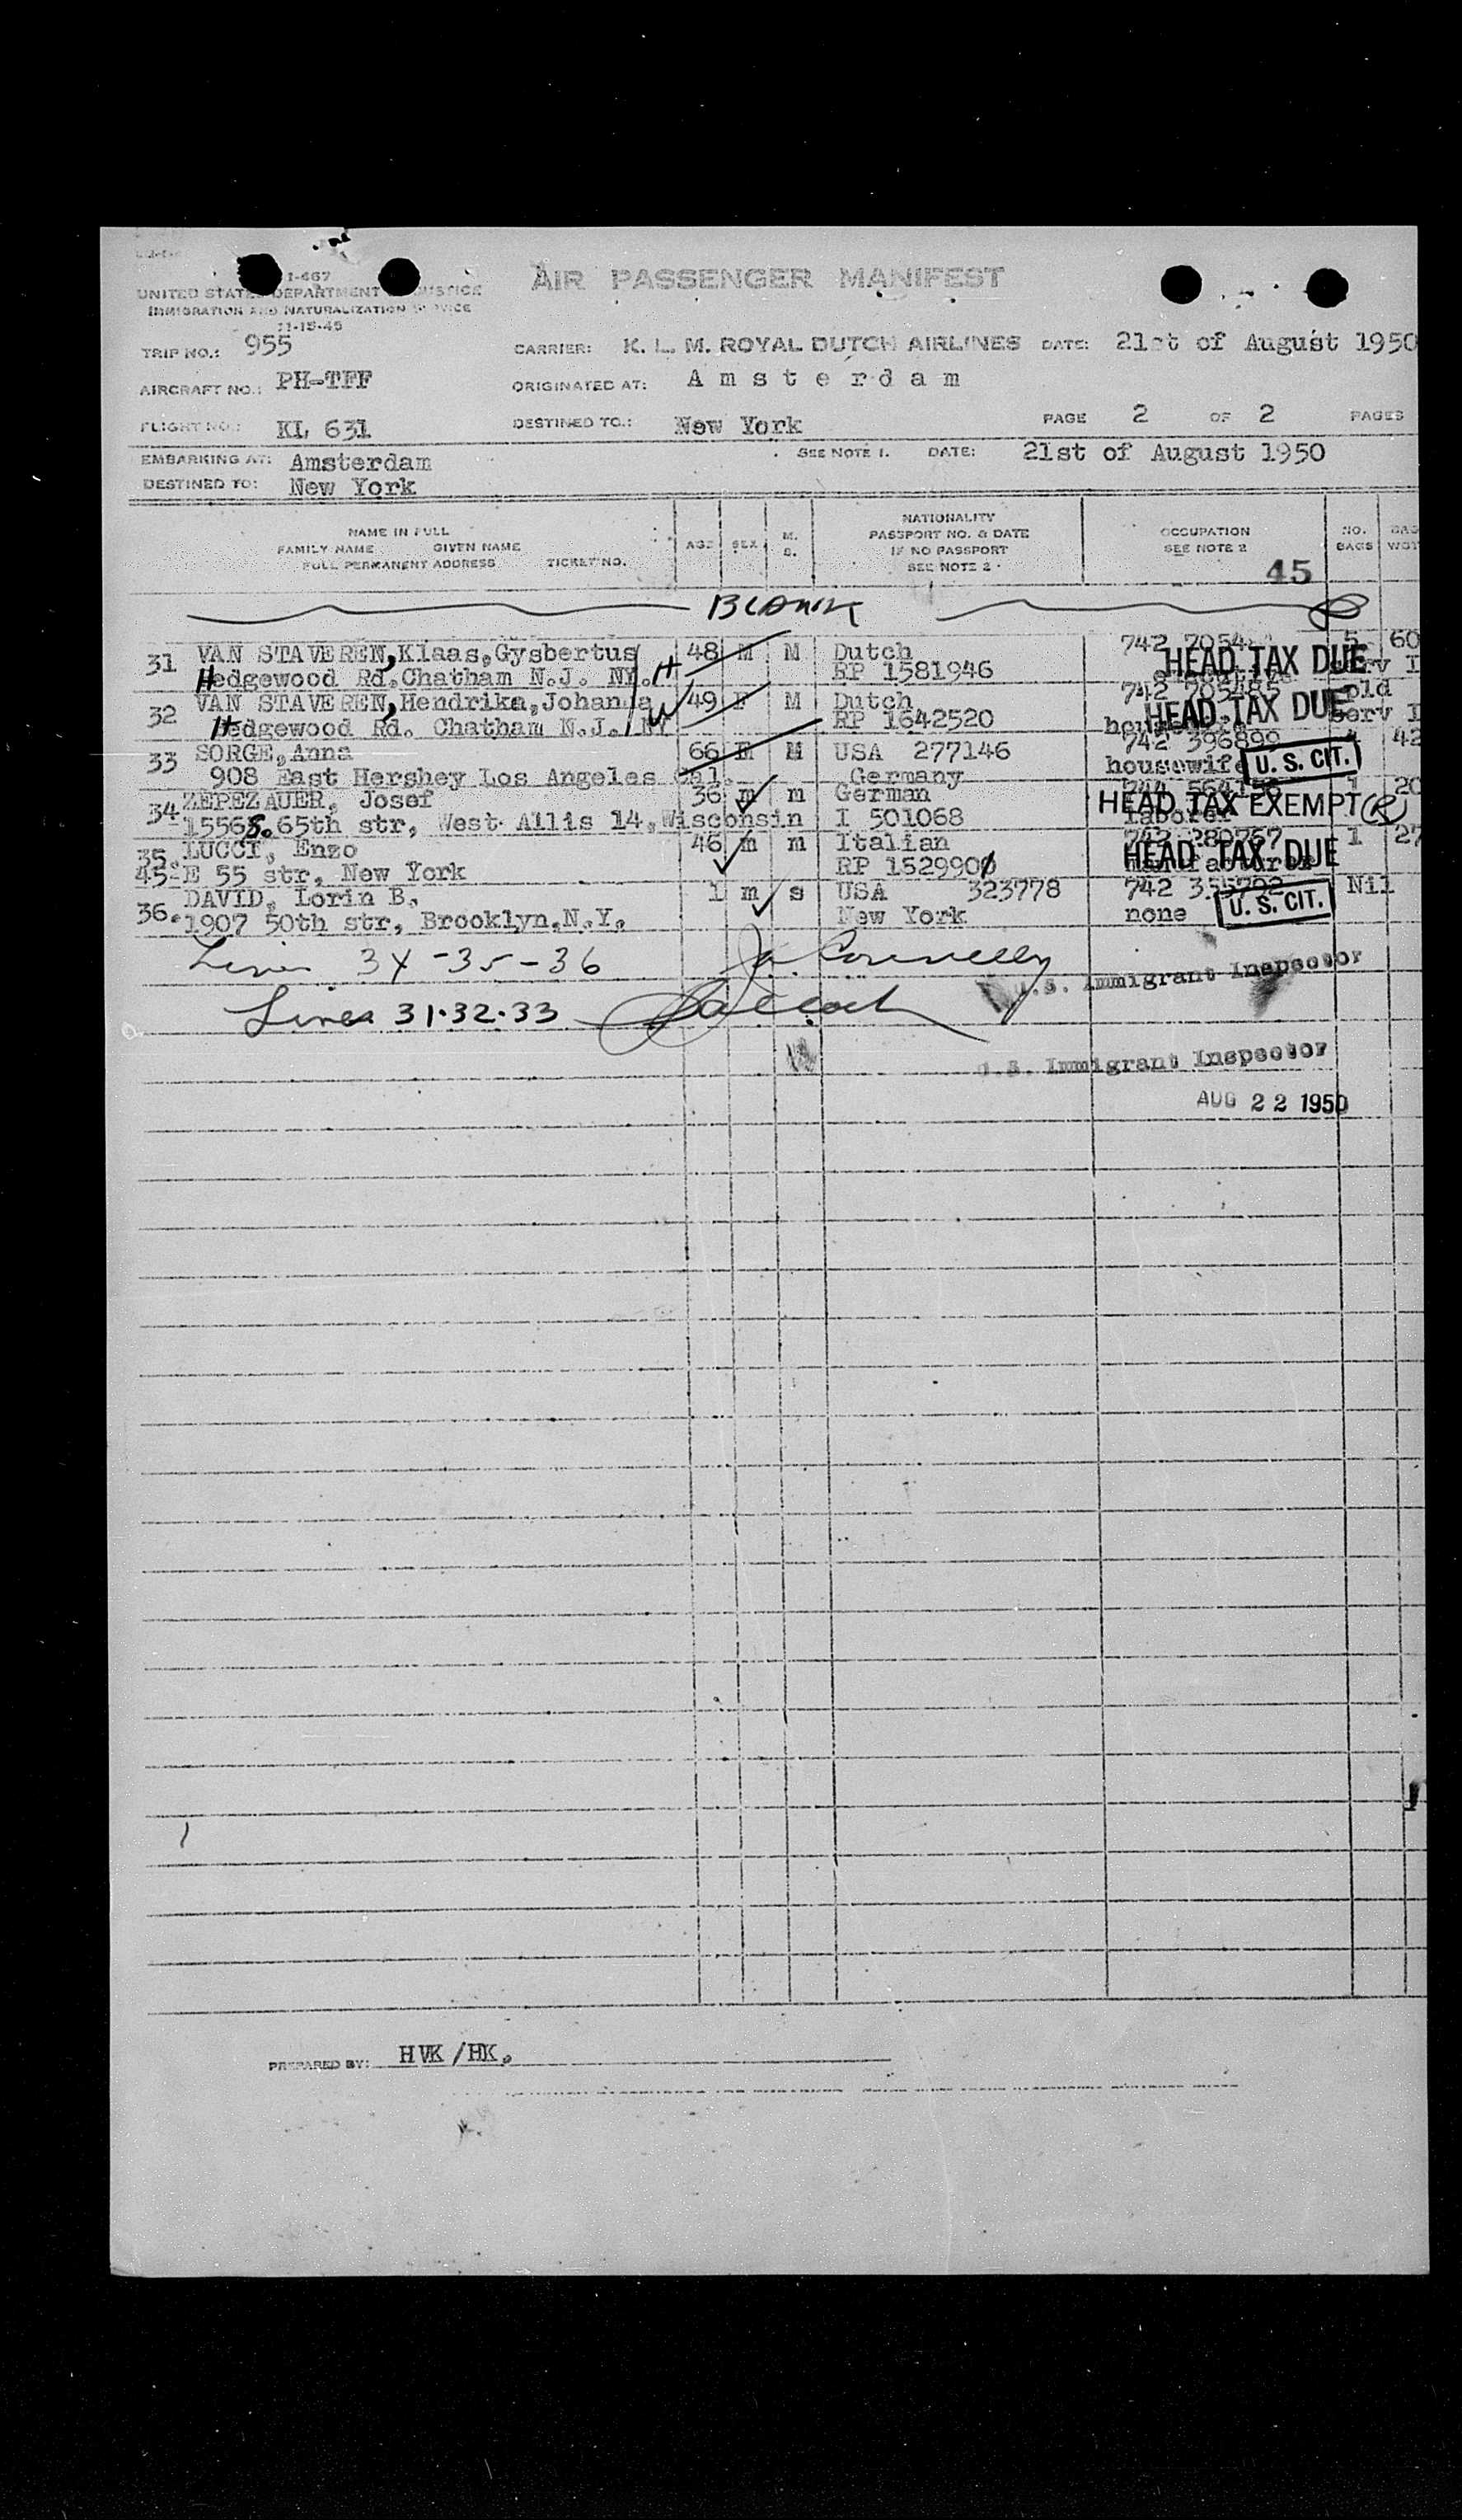 I-467
UNITED STATES DEPARTMENT JUSTICE
IMMIGRATION AND NATURALIZATION SERVICE
11-15-45
AIR PASSENGER MANIFEST
TRIP NO.: 955
CARRIER: K. L. M. ROYAL DUTCH AIRLINES DATE: 21st of August 1950
AIRCRAFT NO.: PH-TFF
ORIGINATED AT: Amsterdam
FLIGHT NO.: KL 631
DESTINED TO.: New York
PAGE 2 OF 2 PAGES
EMBARKING AT: Amsterdam
SEE NOTE 1. DATE: 21st of August 1950
DESTINED TO: New York
NAME IN FULL
FAMILY NAME GIVEN NAME
FULL PERMANENT ADDRESS TICKET NO.
AGE SEX M. S.
NATIONALITY
PASSPORT NO. & DATE
IF NO PASSPORT
SEE NOTE 2
OCCUPATION
SEE NOTE 2
NO. BAGS
45
BLANK
31 VAN STAVEREN, Klaas, Gysbertus 48 M M Dutch 742 7054 5 60
Hedgewood Rd. Chatham N.J. NY. H RP 1581946 HEAD TAX DUE
32 VAN STAVEREN, Hendrika, Johanna 49 F M Dutch 742 705485
Hedgewood Rd. Chatham N.J. NY W RP 1642520 HEAD TAX DUE
33 SORGE, Anna 66 M USA 277146 742 396899 42
908 East Hershey Los Angeles Cal. Germany housewife U. S. CIT.
34. ZEPEZAUER, Josef 36 m m German 1 20
1556 S. 65th str, West Allis 14, Wisconsin I 501068 laborer HEAD TAX EXEMPT R
35. LUCCI, Enzo 46 m m Italian 742 280767 1 27
45-E 55 str, New York RP 1529900 HEAD TAX DUE
36. DAVID, Lorin B. 1 m s USA 323778 742 355792 Nil
1907 50th str, Brooklyn, N.Y. New York none U. S. CIT.
Lines 34-35-36 Connelly
U.S. Immigrant Inspector
Lines 31.32.33
U.S. Immigrant Inspector
AUG 22 1950
PREPARED BY: HVK/HK.